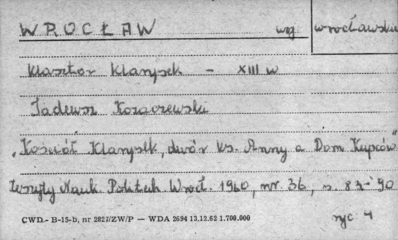 WROCŁAW wg wrocławskie
Klasztor Klarysek – XIII w
Tadeusz Kozaczewski
"Kościół Klarysek, dwór ks. Anny a Dom Kupców"
Zeszyty Nauk. Politech. Wrocł. 1960, nr. 36, s. 83-90
CWD.- B-15-b, nr 2827/ZW/P — WDA 2694 13.12.62 1.700.000
ryc 4